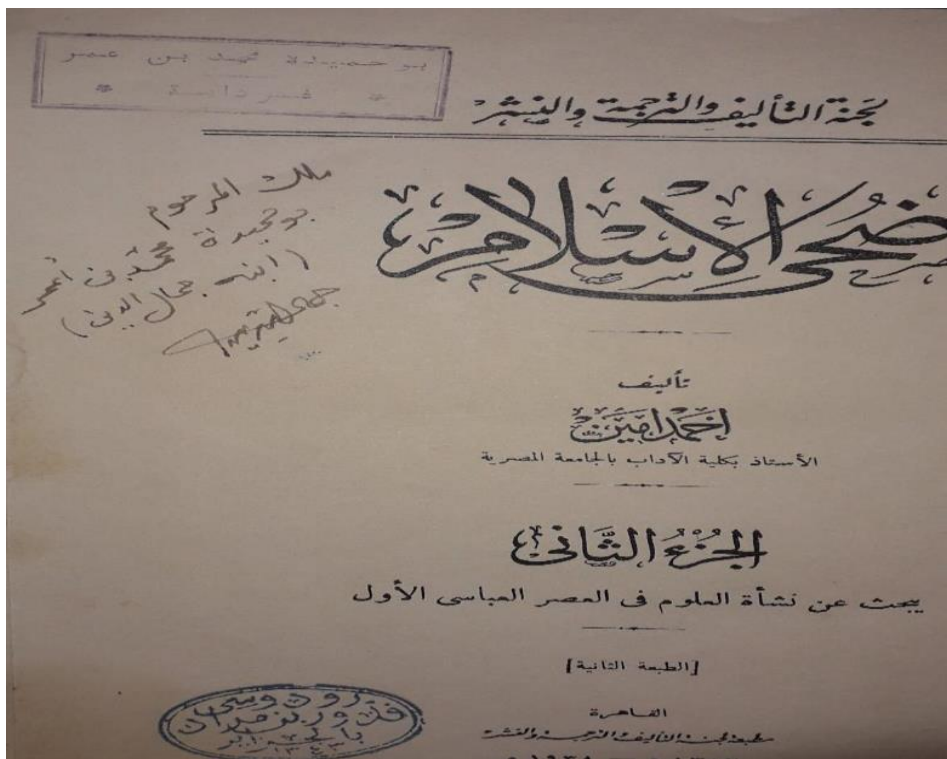 بوحميدة محمد بن عمر
* غرداية *
لجنة التأليف والترجمة والنشر
ملك المرحوم
بوحميدة محمد بن أعمر
(ابنه جمال الدين)
ضحى الإسلام
تأليف
أحمد أمين
الأستاذ بكلية الآداب بالجامعة المصرية
الجُزءُ الثَّانى
يبحث عن نشأة العلوم فى العصر العباسى الأول
[الطبعة الثانية]
القاهرة
مطبعة لجنة التأليف والترجمة والنشر